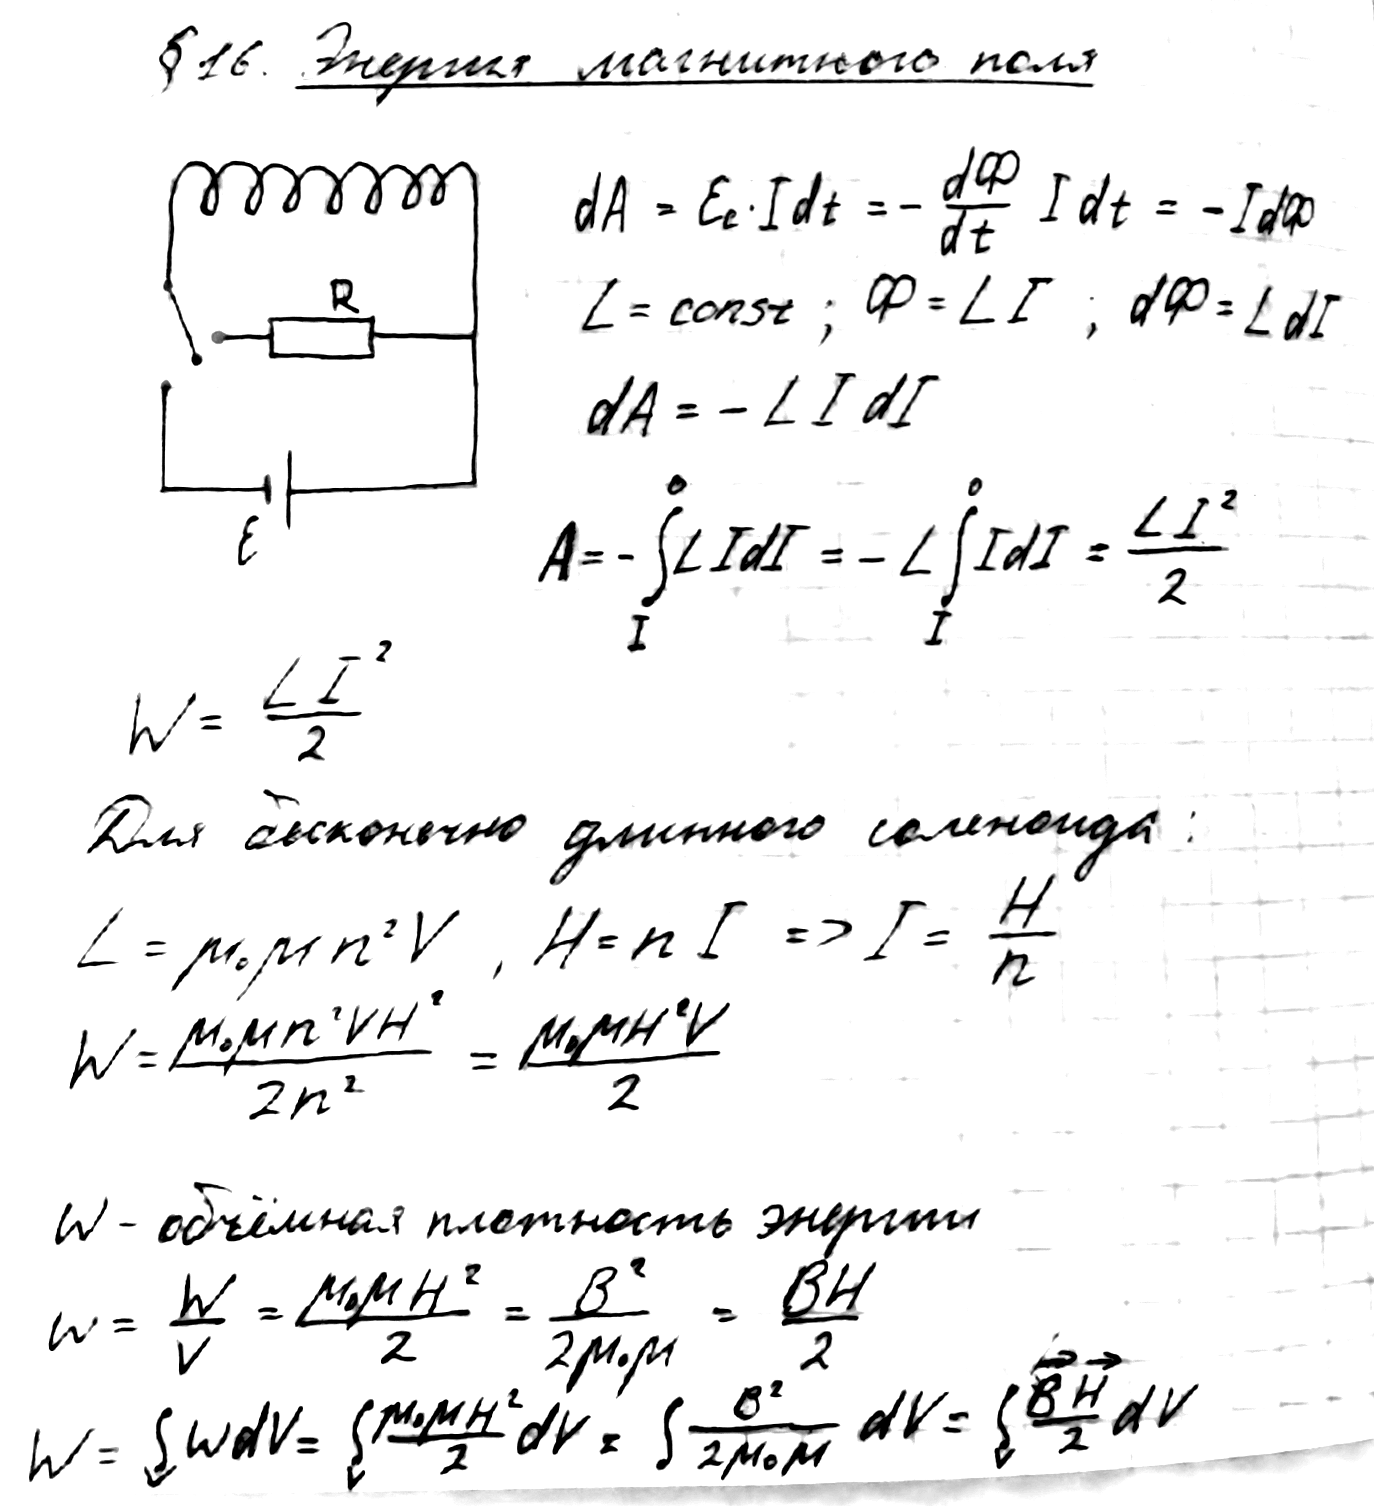 § 16. Энергия магнитного поля
R
ε
dA = ε_c · I dt = - dФ/dt I dt = - I dФ
L = const ; Ф = L I ; dФ = L dI
dA = - L I dI
A = - ∫_I^0 L I dI = - L ∫_I^0 I dI = L I²/2
W = L I²/2
Для бесконечно длинного соленоида :
L = μ₀ μ n² V , H = n I => I = H/n
W = μ₀ μ n² V H²/2n² = μ₀ μ H² V/2
w - объёмная плотность энергии
w = W/V = μ₀ μ H²/2 = B²/2μ₀ μ = BH/2
W = ∫_V w dV = ∫_V μ₀ μ H²/2 dV = ∫ B²/2μ₀ μ dV = ∫_V B⃗ H⃗/2 dV